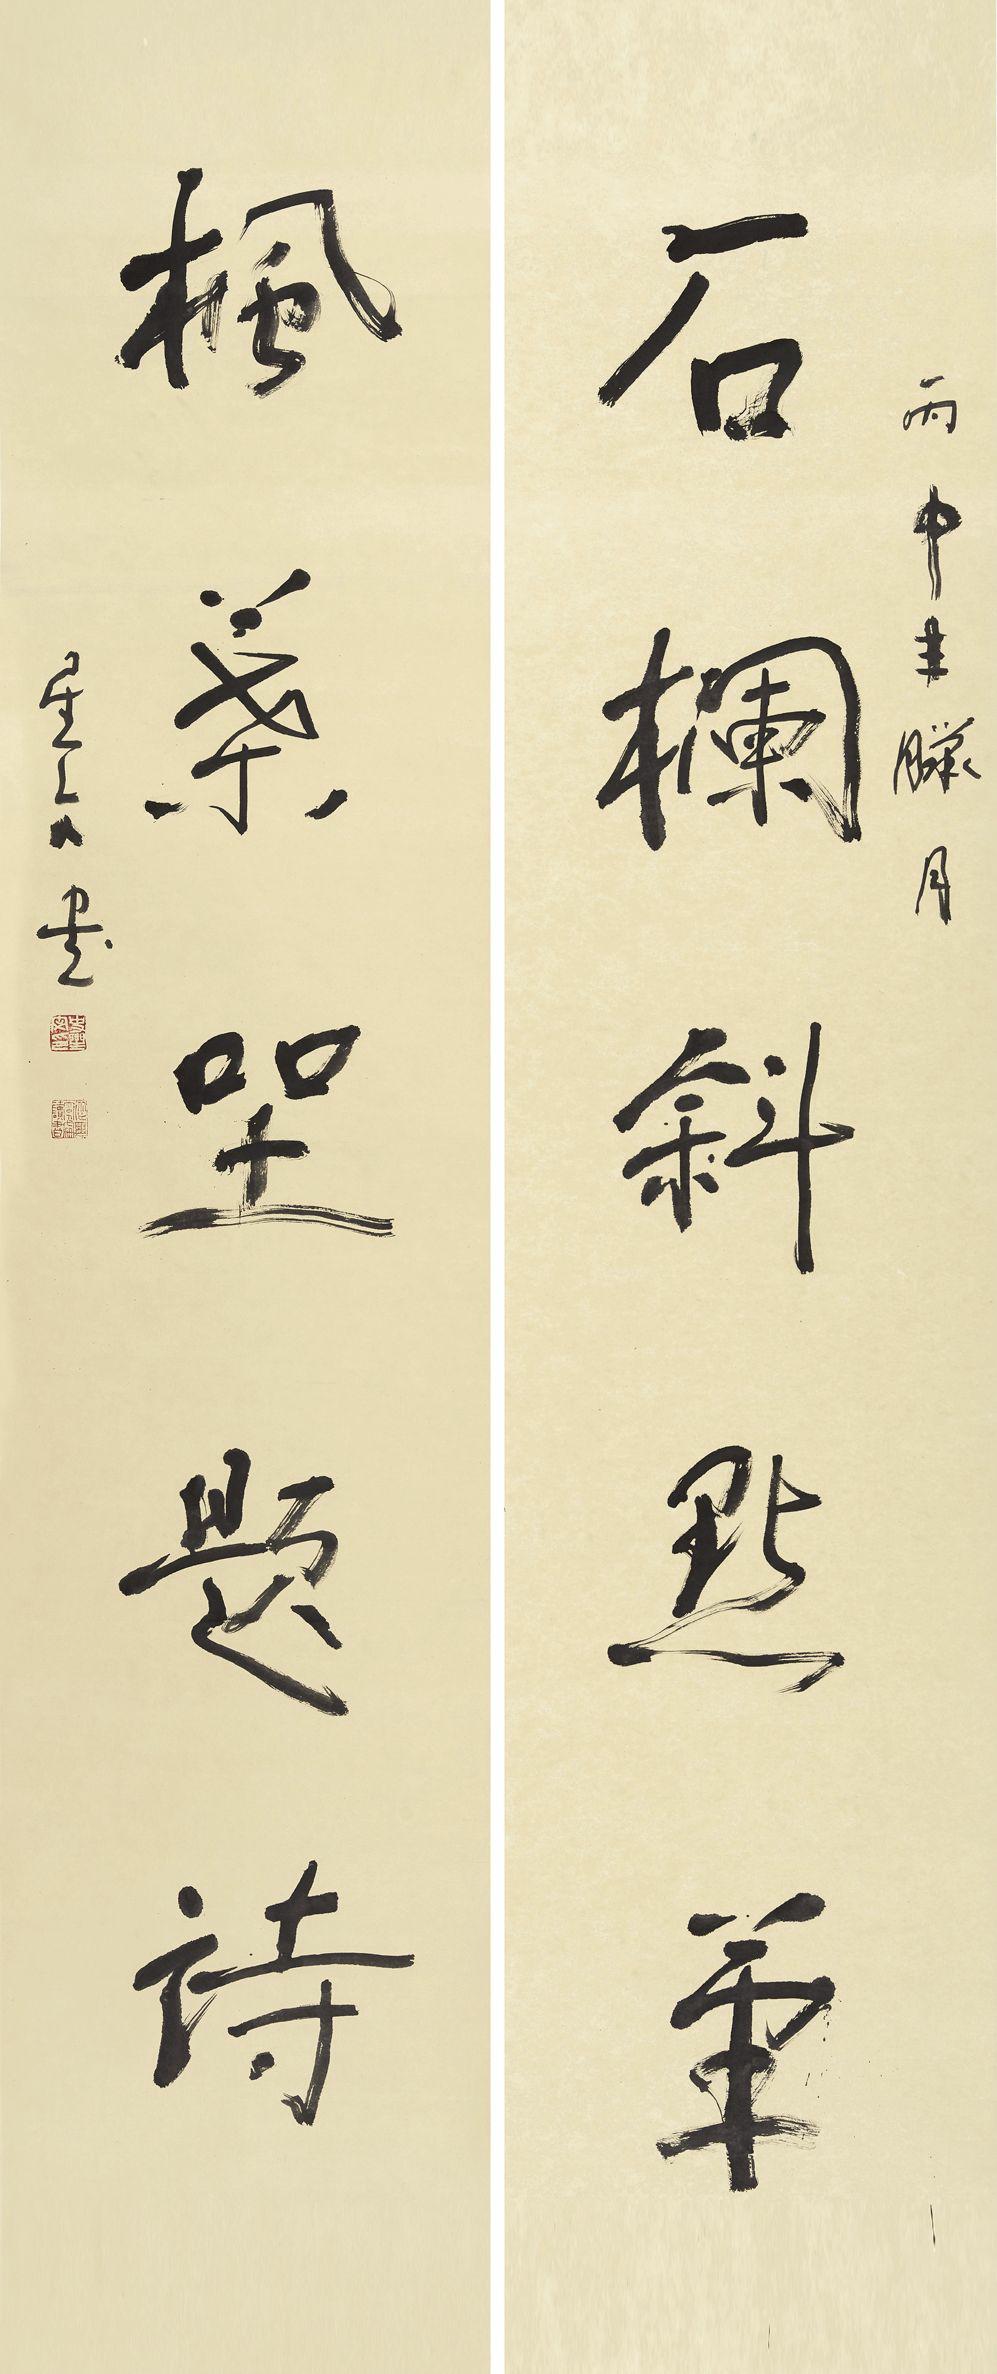 丙申年臘月
石欄斜點筆
楓葉坐題詩
星文書